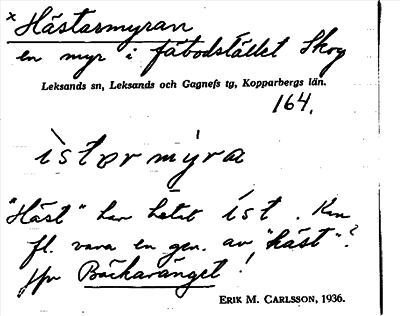 × Hästarmyran
en myr i fäbodstället Skog
Leksands sn, Leksands och Gagnefs tg, Kopparbergs län.
164.
ìstər mỳra
"Häst" har hetat íst. Kan
fl. vara en gen. av "häst"?
Jfr Bäckaränget!
ERIK M. CARLSSON, 1936.